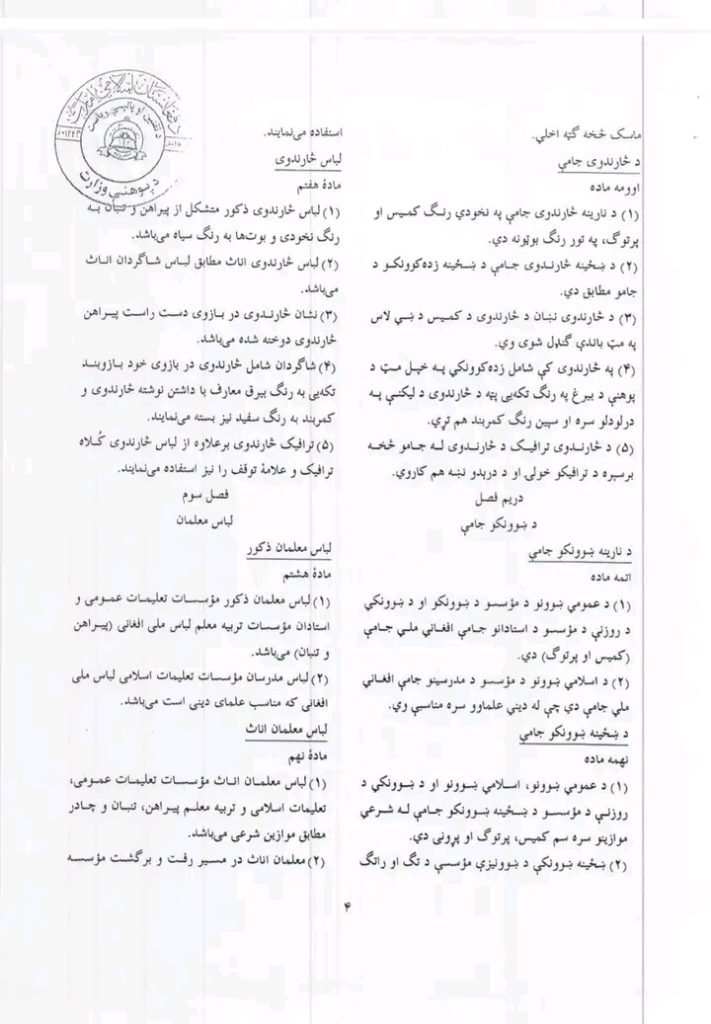 ماسک څخه ګټه اخلي.
د څارندوی جامې
اوومه ماده
(۱) د نارینه څارندوی جامې په نخودي رنګ کمیس او
پرتوګ، په تور رنګ بوټونه دي.
(۲) د ښځینه څارندوی جامې د ښځینه زده‌کوونکو د
جامو مطابق دي.
(۳) د څارندوی نښان د څارندوی د کمیس د ښي لاس
په مټ باندې ګنډل شوی وي.
(۴) په څارندوی کې شامل زده‌کوونکي په خپل مټ د
پوهنې د بیرغ په رنګ تکه‌یی پټه د څارندوی د لیکنې په
درلودلو سره او سپین رنګ کمربند هم تړي.
(۵) د څارندوی ترافیک د څارندوی له جامو څخه
برسېره د ترافیکو خولۍ او د درېدو نښه هم کاروي.
دریم فصل
د ښوونکو جامې
د نارینه ښوونکو جامې
اتمه ماده
(۱) د عمومي ښوونو د مؤسسو د ښوونکو او د ښوونکي
د روزنې د مؤسسو د استادانو جامې افغاني ملي جامې
(کمیس او پرتوګ) دي.
(۲) د اسلامي ښوونو د مؤسسو د مدرسینو جامې افغاني
ملي جامې دي چې له دیني علماوو سره مناسبې وي.
د ښځینه ښوونکو جامې
نهمه ماده
(۱) د عمومي ښوونو، اسلامي ښوونو او د ښوونکي د
روزنې د مؤسسو د ښځینه ښوونکو جامې له شرعي
موازینو سره سم کمیس، پرتوګ او پړونی دي.
(۲) ښځینه ښوونکې د ښوونیزې مؤسسې د تګ او راتګ
استفاده می‌نمایند.
لباس څارندوی
مادهٔ هفتم
(۱) لباس څارندوی ذکور متشکل از پیراهن و تنبان به
رنگ نخودی و بوت‌ها به رنگ سیاه می‌باشد.
(۲) لباس څارندوی اناث مطابق لباس شاگردان اناث
می‌باشد.
(۳) نشان څارندوی در بازوی دست راست پیراهن
څارندوی دوخته شده می‌باشد.
(۴) شاگردان شامل څارندوی در بازوی خود بازوبند
تکه‌یی به رنگ بیرق معارف با داشتن نوشته څارندوی و
کمربند به رنگ سفید نیز بسته می‌نمایند.
(۵) ترافیک څارندوی برعلاوه از لباس څارندوی کُلاه
ترافیک و علامهٔ توقف را نیز استفاده می‌نمایند.
فصل سوم
لباس معلمان
لباس معلمان ذکور
مادهٔ هشتم
(۱) لباس معلمان ذکور مؤسسات تعلیمات عمومی و
استادان مؤسسات تربیه معلم لباس ملی افغانی (پیراهن
و تنبان) می‌باشد.
(۲) لباس مدرسان مؤسسات تعلیمات اسلامی لباس ملی
افغانی که مناسب علمای دینی است می‌باشد.
لباس معلمان اناث
مادهٔ نهم
(۱) لباس معلمان اناث مؤسسات تعلیمات عمومی،
تعلیمات اسلامی و تربیه معلم پیراهن، تنبان و چادر
مطابق موازین شرعی می‌باشد.
(۲) معلمان اناث در مسیر رفت و برگشت مؤسسه
۴
د افغانستان اسلامي امارت
د پوهنې وزارت